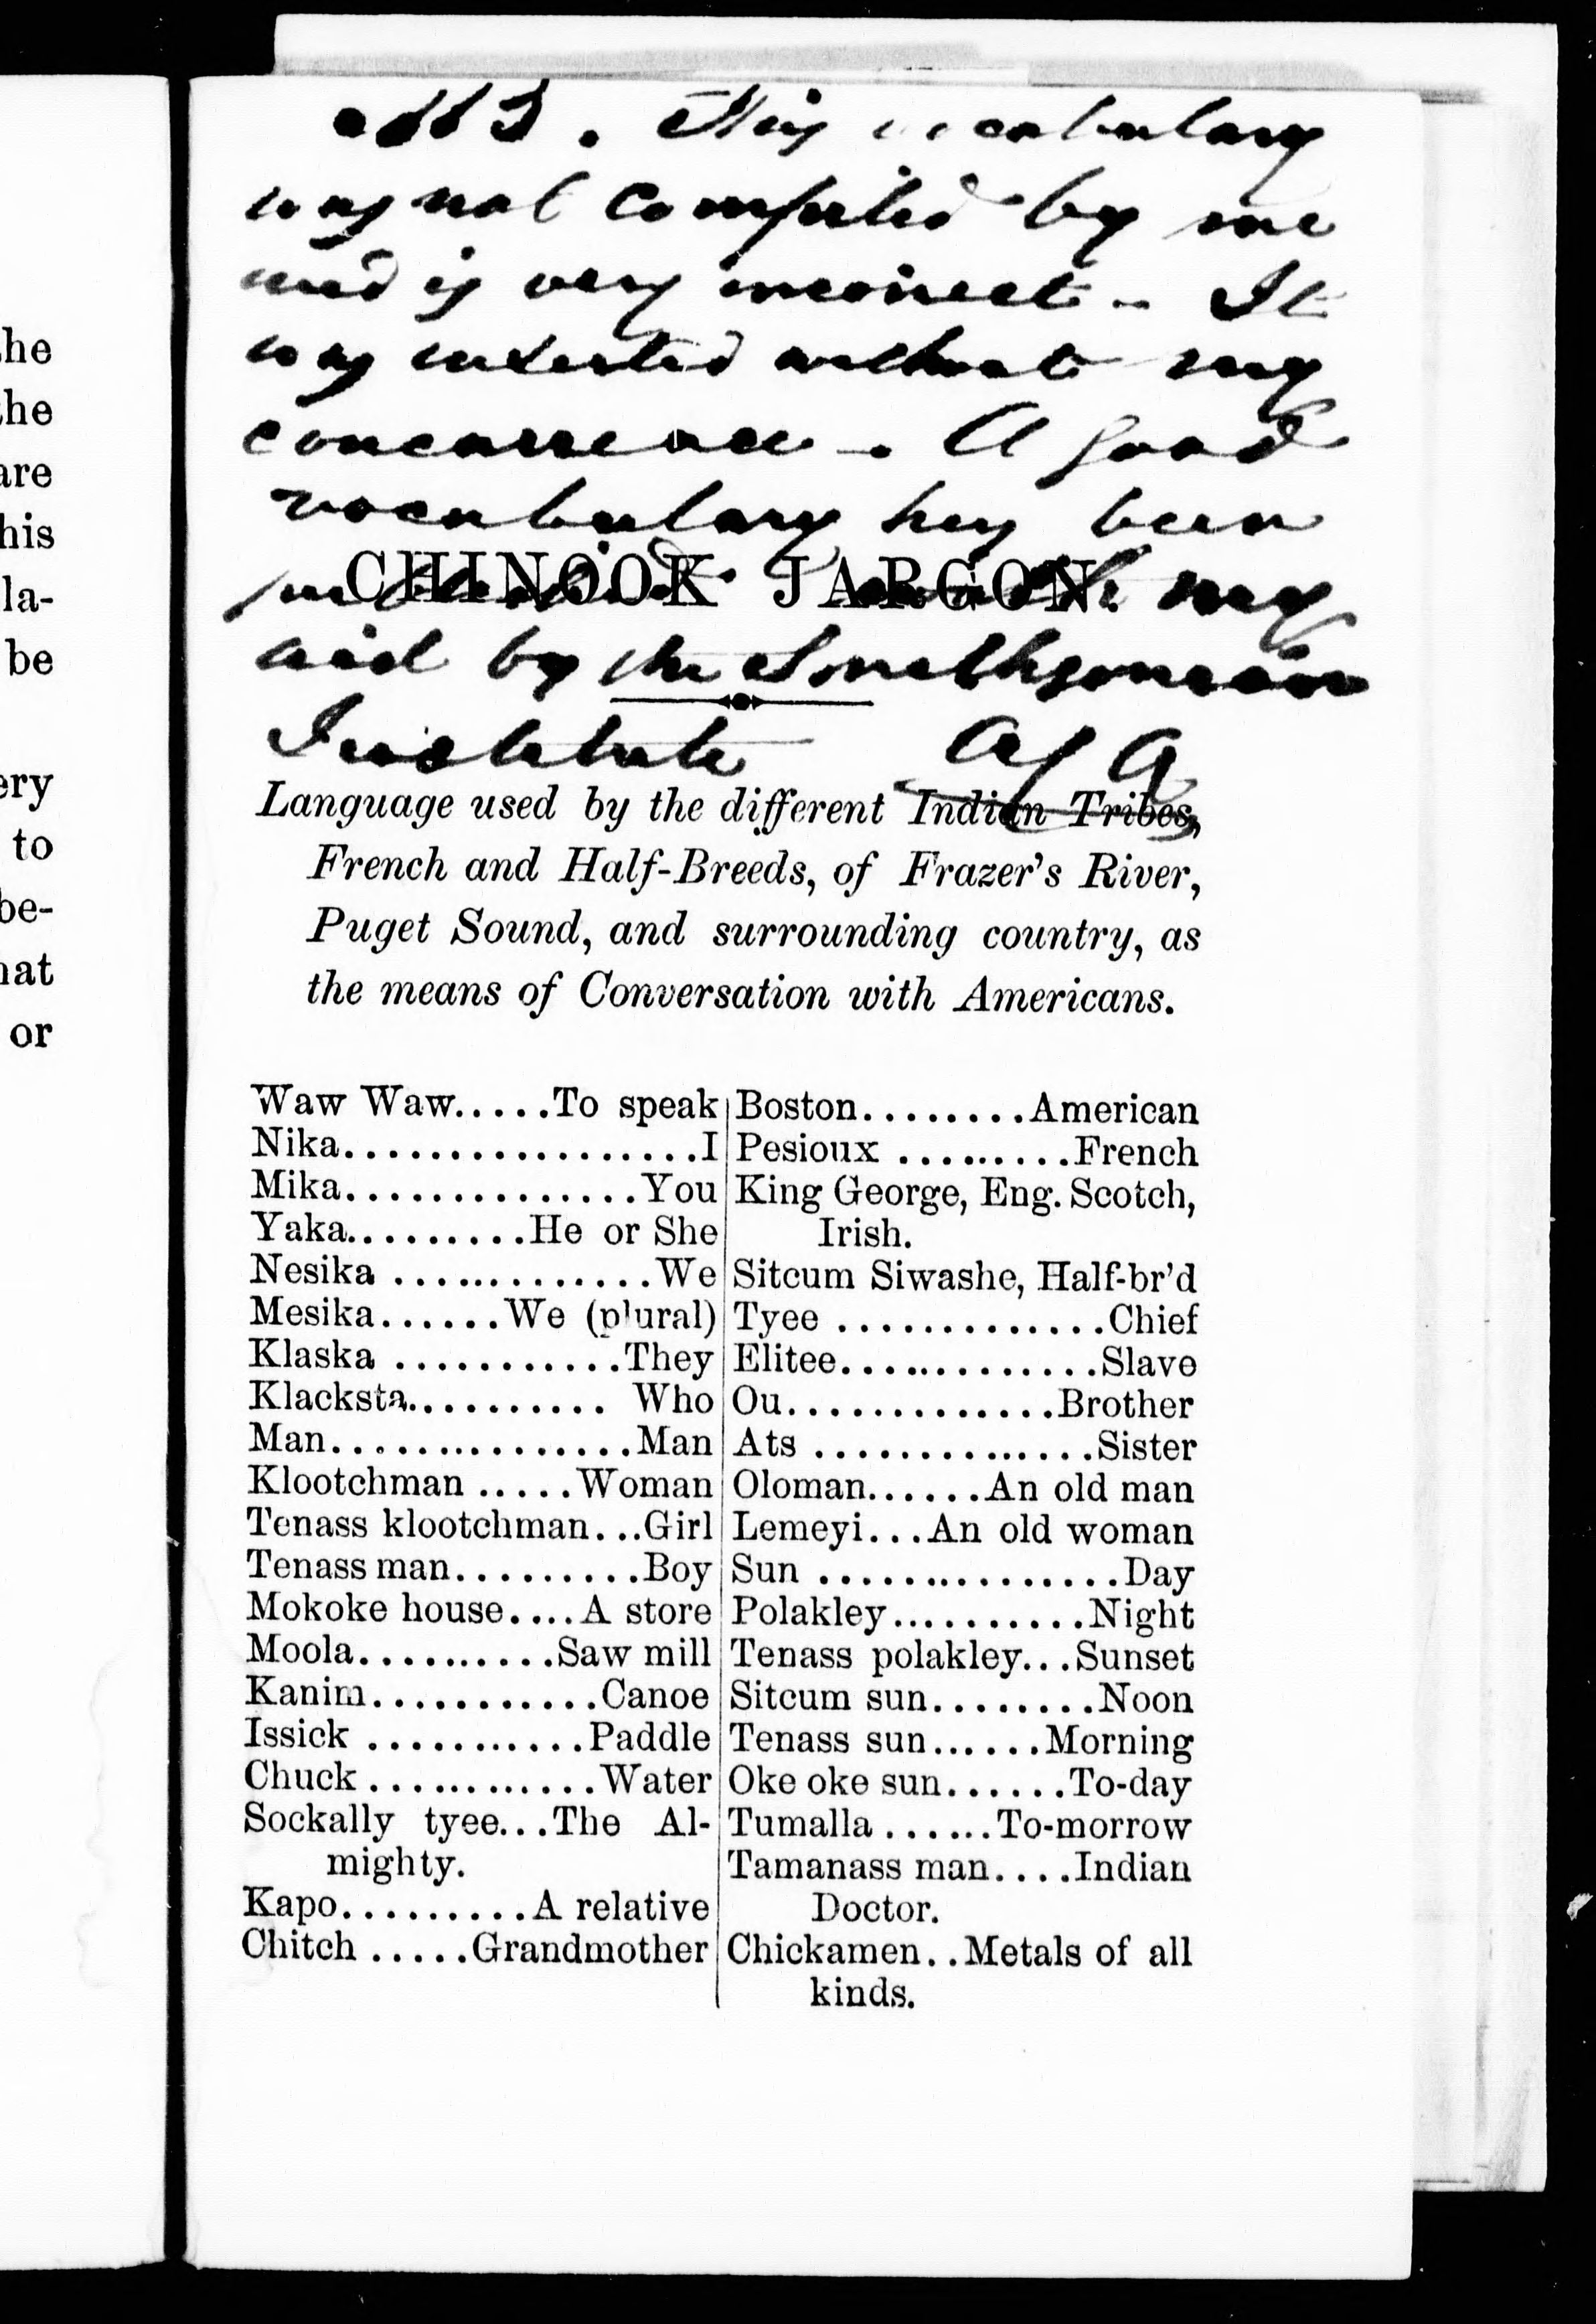 he
the
are
his
la-
be
ery
to
be-
hat
or
This vocabulary
was not compiled by me
and is very incorrect - It
was inserted without my
concurrence - A good
vocabulary has been
published with my
CHINOOK JARGON.
aid by the Smithsonian
Institute A J A
Language used by the different Indian Tribes,
French and Half-Breeds, of Frazer's River,
Puget Sound, and surrounding country, as
the means of Conversation with Americans.
Waw Waw.....To speak
Nika..................I
Mika...............You
Yaka..........He or She
Nesika ..............We
Mesika......We (plural)
Klaska ...........They
Klacksta........... Who
Man................Man
Klootchman .....Woman
Tenass klootchman...Girl
Tenass man..........Boy
Mokoke house....A store
Moola..........Saw mill
Kanim............Canoe
Issick ...........Paddle
Chuck ............Water
Sockally tyee...The Al-
mighty.
Kapo..........A relative
Chitch .....Grandmother
Boston.........American
Pesioux .........French
King George, Eng. Scotch,
Irish.
Sitcum Siwashe, Half-br'd
Tyee ..............Chief
Elitee..............Slave
Ou..............Brother
Ats ...............Sister
Oloman......An old man
Lemeyi...An old woman
Sun ................Day
Polakley..........Night
Tenass polakley...Sunset
Sitcum sun.........Noon
Tenass sun......Morning
Oke oke sun......To-day
Tumalla ......To-morrow
Tamanass man....Indian
Doctor.
Chickamen..Metals of all
kinds.